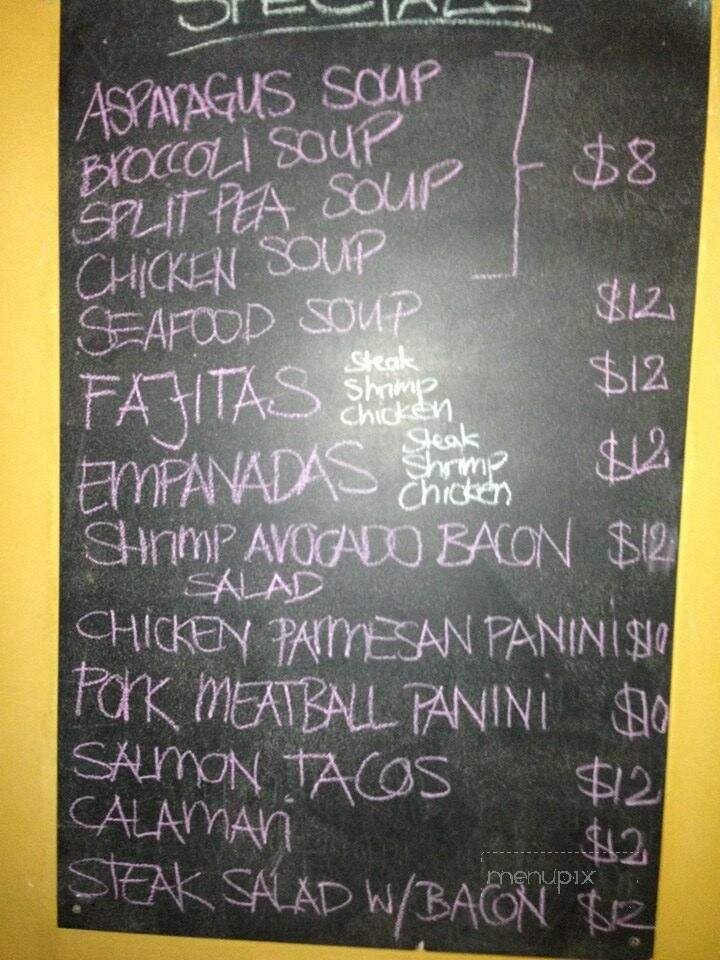 SPECIALS
ASPARAGUS SOUP
BROCCOLI SOUP
SPLIT PEA SOUP
CHICKEN SOUP
$8
SEAFOOD SOUP $12
FAJITAS Steak Shrimp Chicken $12
EMPANADAS Steak Shrimp Chicken $12
Shrimp AVOCADO BACON $12
SALAD
CHICKEN PARMESAN PANINI $10
PORK MEATBALL PANINI $10
SALMON TACOS $12
CALAMARI $12
STEAK SALAD W/BACON $12
menupix